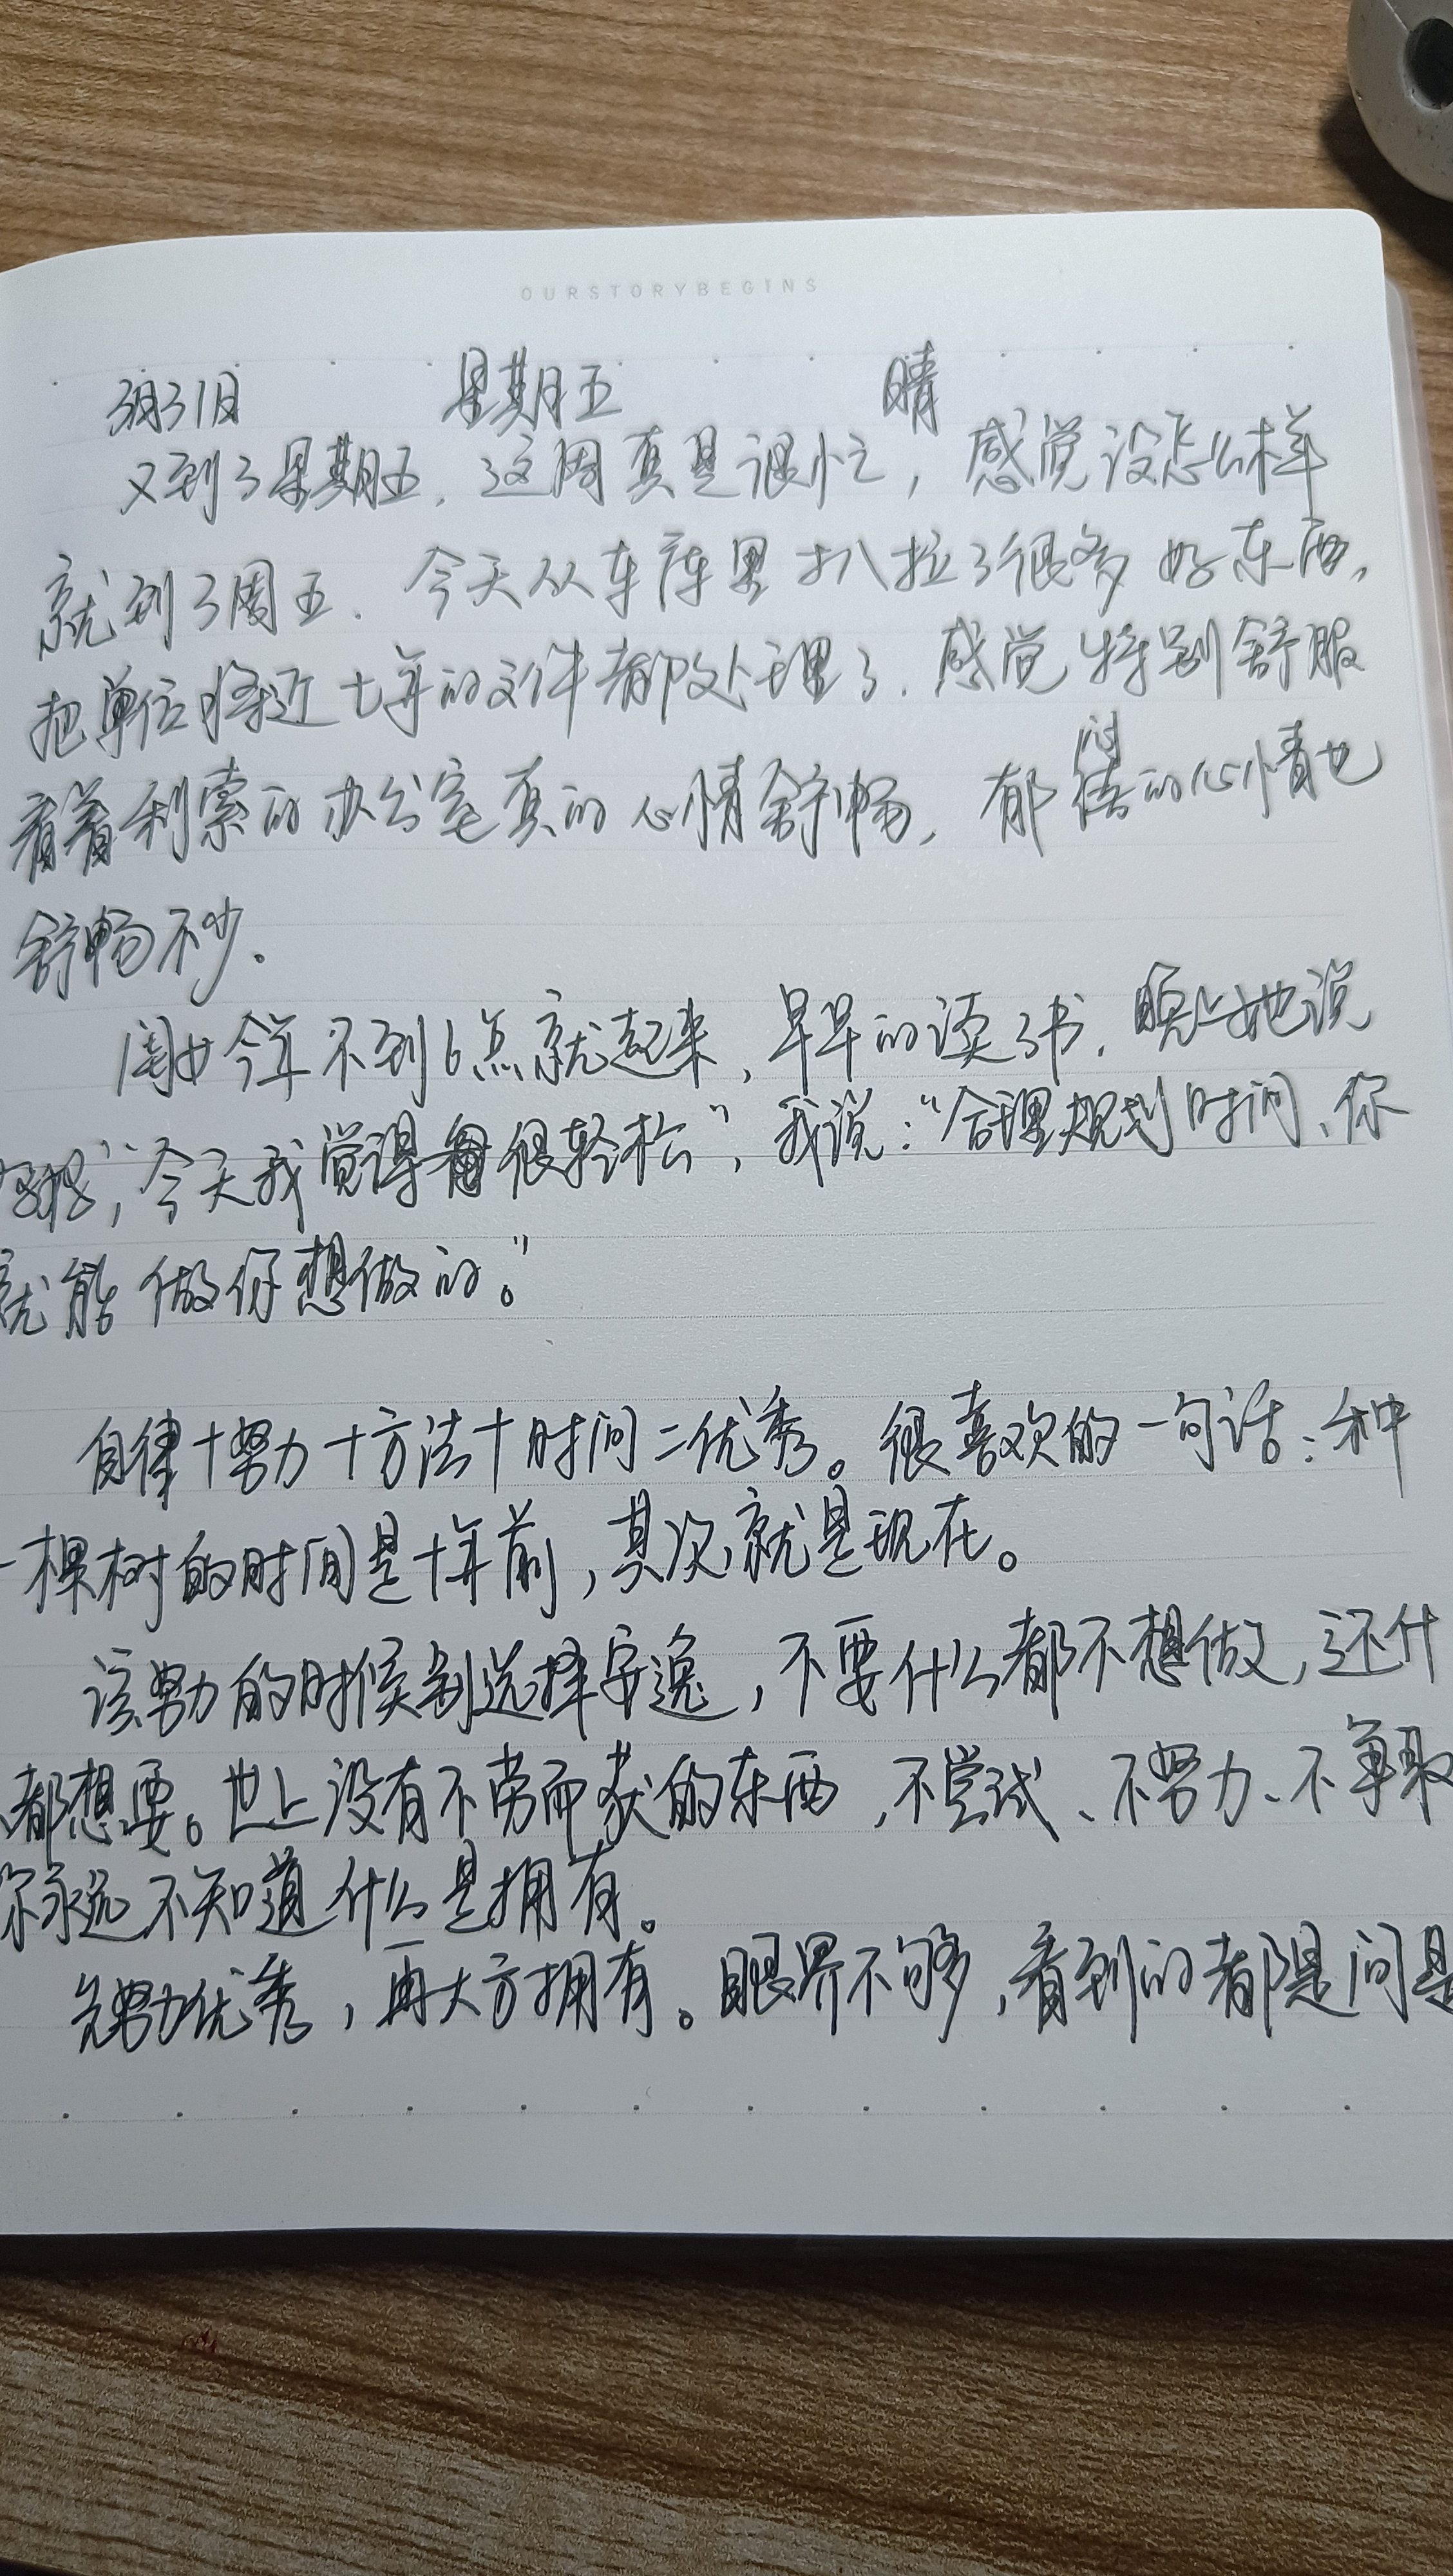 OURSTORYBEGINS
3月31日 星期五 晴
又到了星期五,这周真是很忙,感觉没怎么样
就到了周五.今天从车库里扒拉了很多好东西,
把单位将近七年的文件都处理了.感觉特别舒服
看着利索的办公室真的心情舒畅,郁闷的心情也
舒畅不少.
闺女今早不到6点就起来,早早的读了书.晚上她说
妈妈,"今天我觉得很轻松",我说:"合理规划时间、你
就能做你想做的。"
自律+努力+方法+时间=优秀。很喜欢的一句话:种
一棵树的时间是十年前,其次就是现在。
该努力的时候别选择安逸,不要什么都不想做,还什
么都想要。世上没有不劳而获的东西,不尝试、不努力、不争取
你永远不知道什么是拥有。
先努力优秀,再大方拥有。眼界不够,看到的都是问题